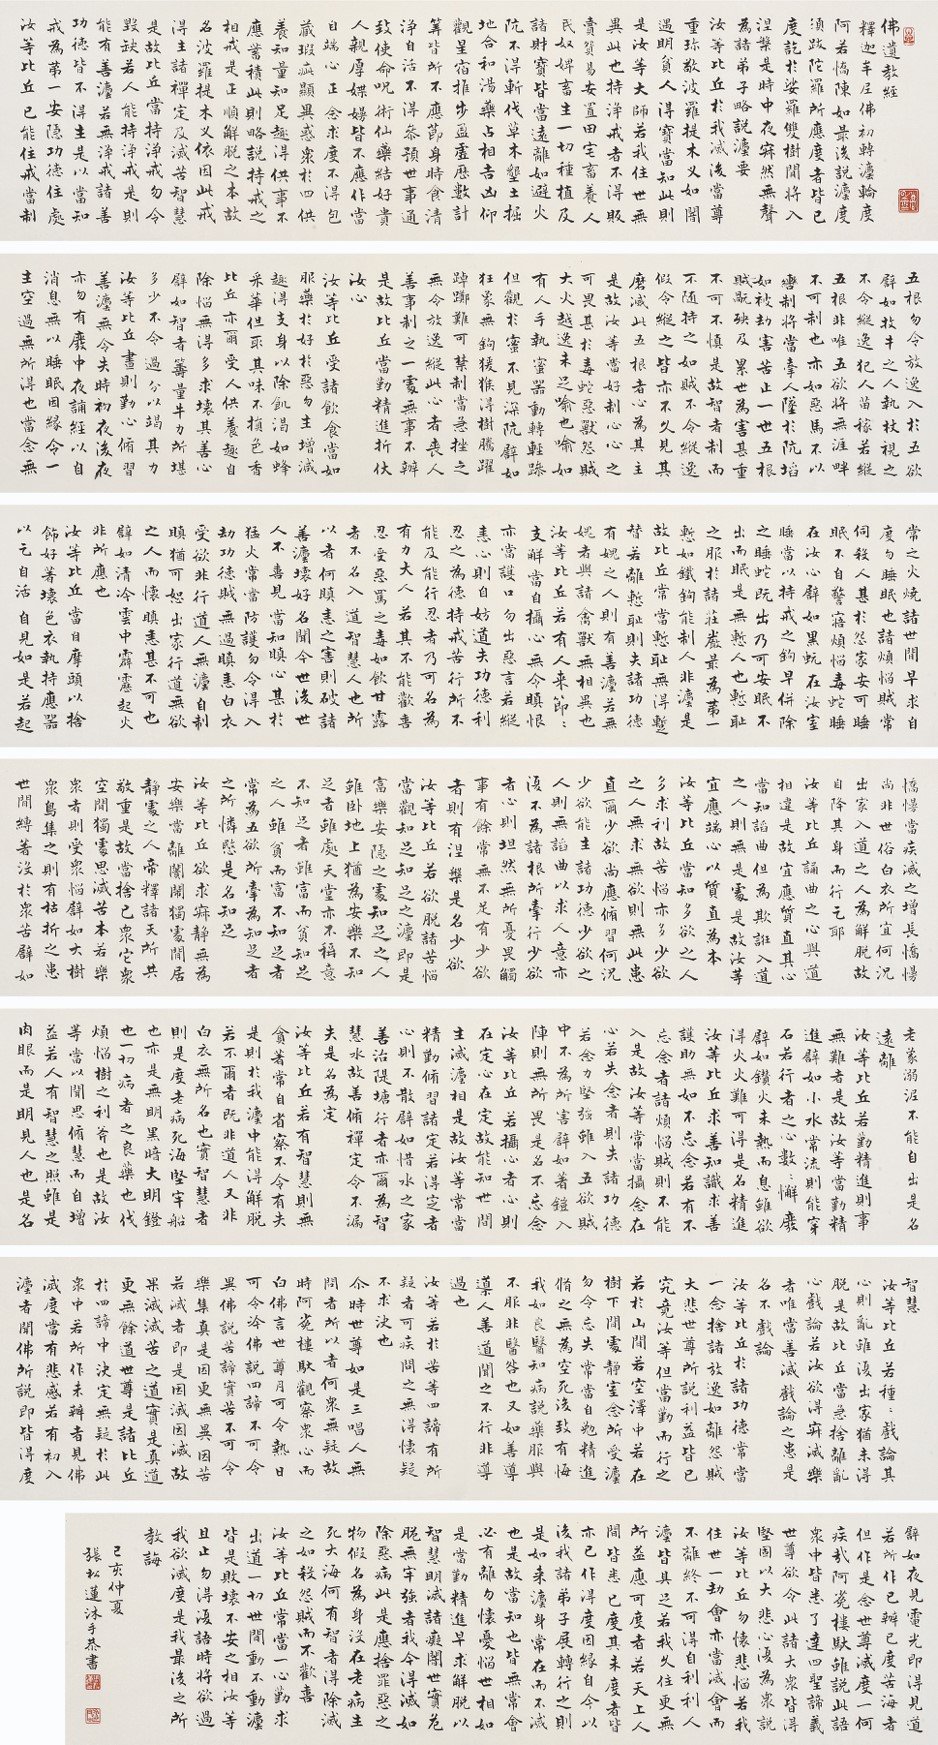 佛遺教經
釋迦牟尼佛初轉灋輪度
阿若憍陳如最後說灋度
須跋陀羅所應度者皆已
度訖於娑羅雙樹間將入
涅槃是時中夜寂然無聲
為諸弟子略說灋要
汝等比丘於我滅後當尊
重珍敬波羅提木叉如闇
遇明貧人得寶當知此則
是汝等大師若我住世無
異此也持淨戒者不得販
賣貿易安置田宅畜養人
民奴婢畜生一切種植及
諸財寶皆當遠離如避火
阬不得斬伐草木墾土掘
地合和湯藥占相吉凶仰
觀星宿推步盈虛曆數計
算皆所不應節身時食清
淨自活不得參預世事通
致使命呪術仙藥結好貴
人親厚媟嫚皆不應作當
自端心正念求度不得包
藏瑕疵顯異惑眾於四供
養知量知足趣得供事不
應蓄積此則略說持戒之
相戒是正順解脫之本故
名波羅提木叉依因此戒
得生諸禪定及滅苦智慧
是故比丘當持淨戒勿令
毀缺若人能持淨戒是則
能有善灋若無淨戒諸善
功德皆不得生是以當知
戒為第一安隱功德住處
汝等比丘已能住戒當制
五根勿令放逸入於五欲
譬如牧牛之人執杖視之
不令縱逸犯人苗稼若縱
五根非唯五欲將無涯畔
不可制也亦如惡馬不以
轡制將當牽人墜於阬埳
如被劫害苦止一世五根
賊禍殃及累世為害甚重
不可不慎是故智者制而
不隨持之如賊不令縱逸
假令縱之皆亦不久見其
磨滅此五根者心為其主
是故汝等當好制心心之
可畏甚於毒蛇惡獸怨賊
大火越逸未足喻也喻如
有人手執蜜器動轉輕躁
但觀於蜜不見深阬譬如
狂象無鉤猨猴得樹騰躍
踔躑難可禁制當急挫之
無令放逸縱此心者喪人
善事制之一處無事不辦
是故比丘當勤精進折伏
汝心
汝等比丘受諸飲食當如
服藥於好於惡勿生增減
趣得支身以除飢渴如蜂
采華但取其味不損色香
比丘亦爾受人供養趣自
除惱無得多求壞其善心
譬如智者籌量牛力所堪
多少不令過分以竭其力
汝等比丘晝則勤心修習
善灋無令失時初夜後夜
亦勿有廢中夜誦經以自
消息無以睡眠因緣令一
生空過無所得也當念無
常之火燒諸世間早求自
度勿睡眠也諸煩惱賊常
伺殺人甚於怨家安可睡
眠不自警寤煩惱毒蛇睡
在汝心譬如黑蚖在汝室
睡當以持戒之鉤早併除
之睡蛇既出乃可安眠不
出而眠是無慙人也慙恥
之服於諸莊嚴最為第一
慙如鐵鉤能制人非灋是
故比丘常當慙恥無得暫
替若離慙恥則失諸功德
有愧之人則有善灋若無
愧者與諸禽獸無相異也
汝等比丘若有人來節々
支解當自攝心無令瞋恨
亦當護口勿出惡言若縱
恚心則自妨道失功德利
忍之為德持戒苦行所不
能及能行忍者乃可名為
有力大人若其不能歡喜
忍受惡罵之毒如飲甘露
者不名入道智慧人也所
以者何瞋恚之害則破諸
善灋壞好名聞今世後世
人不喜見當知瞋心甚於
猛火常當防護勿令得入
劫功德賊無過瞋恚白衣
受欲非行道人無灋自制
瞋猶可恕出家行道無欲
之人而懷瞋恚甚不可也
譬如清冷雲中霹靂起火
非所應也
汝等比丘當自摩頭以捨
飾好著壞色衣執持應器
以乞自活自見如是若起
憍慢當疾滅之增長憍慢
尚非世俗白衣所宜何況
出家入道之人為解脫故
自降其身而行乞耶
汝等比丘諂曲之心與道
相違是故宜應質直其心
當知諂曲但為欺誑入道
之人則無是處是故汝等
宜應端心以質直為本
汝等比丘當知多欲之人
多求利故苦惱亦多少欲
之人無求無欲則無此患
直爾少欲尚應修習何況
少欲能生諸功德少欲之
人則無諂曲以求人意亦
復不為諸根所牽行少欲
者心則坦然無所憂畏觸
事有餘常無不足有少欲
者則有涅槃是名少欲
汝等比丘若欲脫諸苦惱
當觀知足知足之灋即是
富樂安隱之處知足之人
雖臥地上猶為安樂不知
足者雖處天堂亦不稱意
不知足者雖富而貧知足
之人雖貧而富不知足者
常為五欲所牽為知足者
之所憐愍是名知足
汝等比丘欲求寂靜無為
安樂當離闤鬧獨處閒居
靜處之人帝釋諸天所共
敬重是故當捨己眾它眾
空閒獨處思滅苦本若樂
眾者則受眾惱譬如大樹
眾鳥集之則有枯折之患
世間縛著沒於眾苦譬如
老象溺泥不能自出是名
遠離
汝等比丘若勤精進則事
無難者是故汝等當勤精
進譬如小水常流則能穿
石若行者之心數々懈廢
譬如鑽火未熱而息雖欲
得火火難可得是名精進
汝等比丘求善知識求善
護助無如不忘念若有不
忘念者諸煩惱賊則不能
入是故汝等常當攝念在
心若失念者則失諸功德
若念力堅強雖入五欲賊
中不為所害譬如著鎧入
陣則無所畏是名不忘念
汝等比丘若攝心者心則
在定心在定故能知世間
生滅灋相是故汝等常當
精勤修習諸定若得定者
心則不散譬如惜水之家
善治隄塘行者亦爾為智
慧水故善修禪定令不漏
失是名為定
汝等比丘若有智慧則無
貪著常自省察不令有失
是則於我灋中能得解脫
若不爾者既非道人又非
白衣無所名也實智慧者
則是度老病死海堅牢船
也亦是無明黑暗大明鐙
也一切病者之良藥也伐
煩惱樹之利斧也是故汝
等當以聞思修慧而自增
益若人有智慧之照雖是
肉眼而是明見人也是名
智慧
汝等比丘若種々戲論其
心則亂雖復出家猶未得
脫是故比丘當急捨離亂
心戲論若汝欲得寂滅樂
者唯當善滅戲論之患是
名不戲論
汝等比丘於諸功德常當
一念捨諸放逸如離怨賊
大悲世尊所說利益皆已
究竟汝等但當勤而行之
若於山間若空澤中若在
樹下閒處靜室念所受灋
勿令忘失常當自勉精進
修之無為空死後致有悔
我如良醫知病說藥服與
不服非醫咎也又如善導
導人善道聞之不行非導
過也
汝等若於苦等四諦有所
疑者可疾問之無得懷疑
不求決也
尒時世尊如是三唱人無
問者所以者何眾無疑故
時阿㝹樓馱觀察眾心而
白佛言世尊月可令熱日
可令冷佛說四諦不可令
異佛說苦諦實苦不可令
樂集真是因更無異因苦
若滅者即是因滅因滅故
果滅滅苦之道實是真道
更無餘道世尊是諸比丘
於四諦中決定無疑於此
眾中若所作未辦者見佛
滅度當有悲感若有初入
灋者聞佛所說即皆得度
譬如夜見電光即得見道
若所作已辦已度苦海者
但作是念世尊滅度一何
疾哉阿㝹樓馱雖說此語
眾中皆悉了達四聖諦義
世尊欲令此諸大眾皆得
堅固以大悲心復為眾說
汝等比丘勿懷悲惱若我
住世一劫會亦當滅會而
不離終不可得自利利人
灋皆具足若我久住更無
所益應可度者若天上人
間皆悉已度其未度者皆
亦已作得度因緣自今以
後我諸弟子展轉行之則
是如來灋身常在而不滅
也是故當知世皆無常會
必有離勿懷憂惱世相如
是當勤精進早求解脫以
智慧明滅諸癡闇世實危
脆無牢強者我今得滅如
除惡病此是應捨罪惡之
物假名為身沒在老病生
死大海何有智者得除滅
之如殺怨賊而不歡喜
汝等比丘常當一心勤求
出道一切世間動不動灋
皆是敗壞不安之相汝等
且止勿得復語時將欲過
我欲滅度是我最後之所
教誨
己亥仲夏
張松蓮沐手恭書